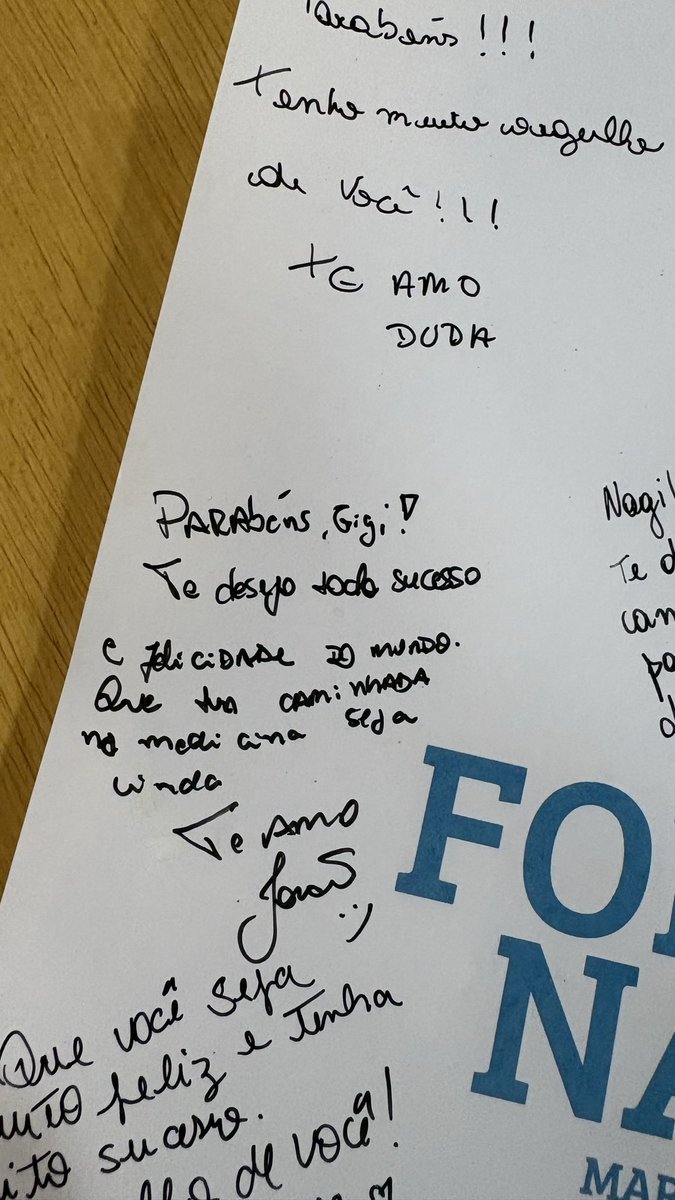 Parabéns!!!
Tenho muito orgulho
de você!!!
TE AMO
DUDA
PARAbéns, Gigi!
Te desejo todo sucesso
e feliciDADE DO MUNDO.
Que tua CAMINHADA
na medicina seja
linda
Te AMO
:)
Nagi
Te d
cam
pa
d
Que você seja
muito feliz e tenha
ito sucesso.
de você!
FO
NA
MAR